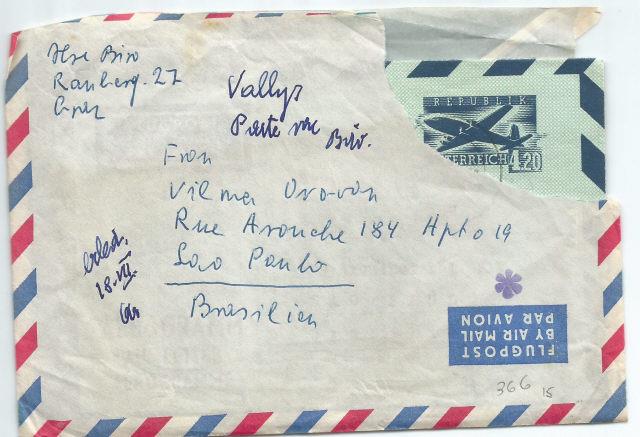 Ilse Biro
Rauberg. 27
Graz
Vallys
Paste von Biró.
REPUBLIK
ÖSTERREICH 4.20
Frau
Vilma Osovan
Rue Arouche 184 Apto 19
Sao Paulo
Brasilien
erled.
18. VII.
FLUGPOST
BY AIR MAIL
PAR AVION
366 15